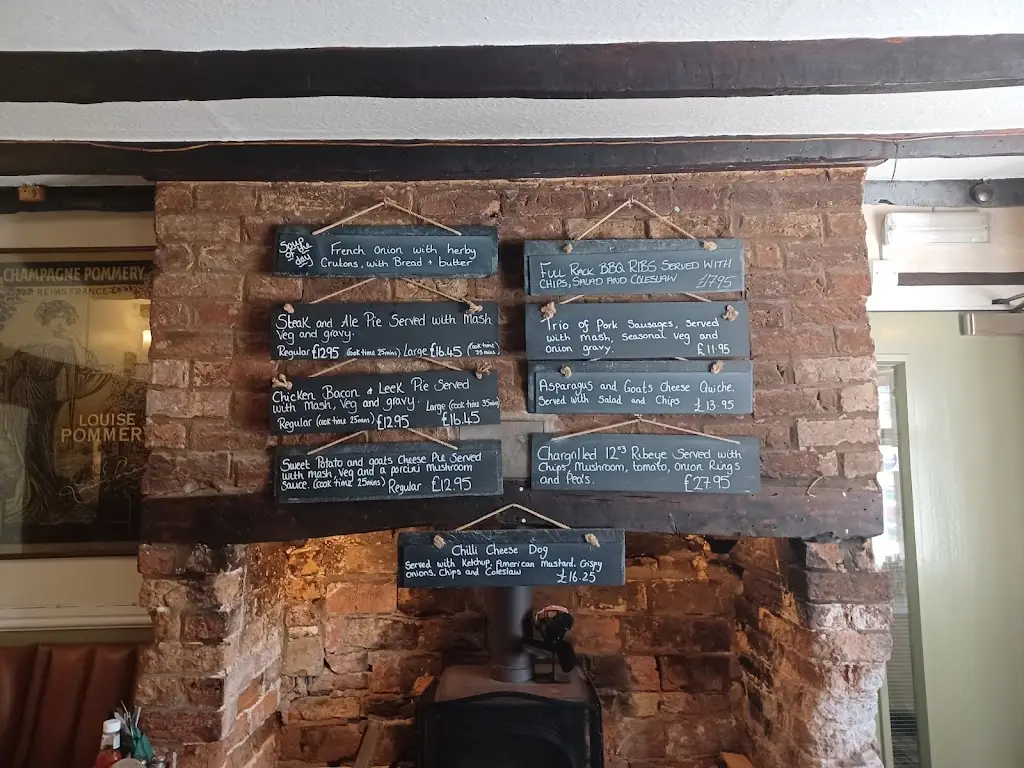 CHAMPAGNE POMMERY
REIMS FRANCE
LOUISE
POMMERY
Soup
of the
day
French Onion with herby
Crutons, with Bread + butter
Steak and Ale Pie Served with Mash
Veg and gravy.
Regular £12.95 (cook time 25mins) / Large £16.45 (cook time 35mins)
Chicken Bacon & Leek Pie Served
with mash, Veg and gravy. Large (cook time 35min)
Regular (cook time 25mins) £12.95 £16.45
Sweet Potato and goats Cheese Pie Served
with mash, Veg and a porcini mushroom
sauce. (cook time 25mins) Regular £12.95
FULL RACK BBQ RIBS SERVED WITH
CHIPS, SALAD AND COLESLAW £17.95
Trio of Pork Sausages, Served
with mash, Seasonal veg and
onion gravy. £11.95
Asparagus and Goats Cheese Quiche.
Served with Salad and Chips £13.95
Chargrilled 12oz Ribeye Served with
Chips, Mushroom, tomato, onion Rings
and Pea's. £27.95
Chilli Cheese Dog
Served with Ketchup, American Mustard, Crispy
onions, Chips and Coleslaw £16.25